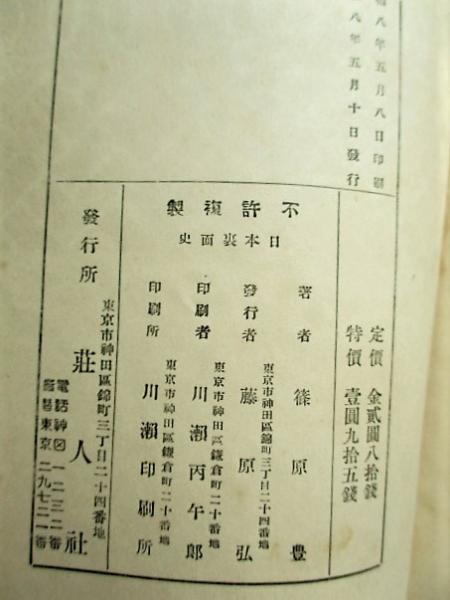 八年五月八日印刷
八年五月十日發行
定價 金貳圓八拾錢
特價 壹圓九拾五錢
不許複製
日本裏面史
著者 篠原豊
東京市神田區錦町三丁目二十四番地
發行者 藤原弘
東京市神田區鎌倉町二十番地
印刷者 川瀨丙午郎
東京市神田區鎌倉町二十番地
印刷所 川瀨印刷所
發行所
東京市神田區錦町三丁目二十四番地
莊人社
電話神田一二三二番
振替東京二九七二一番